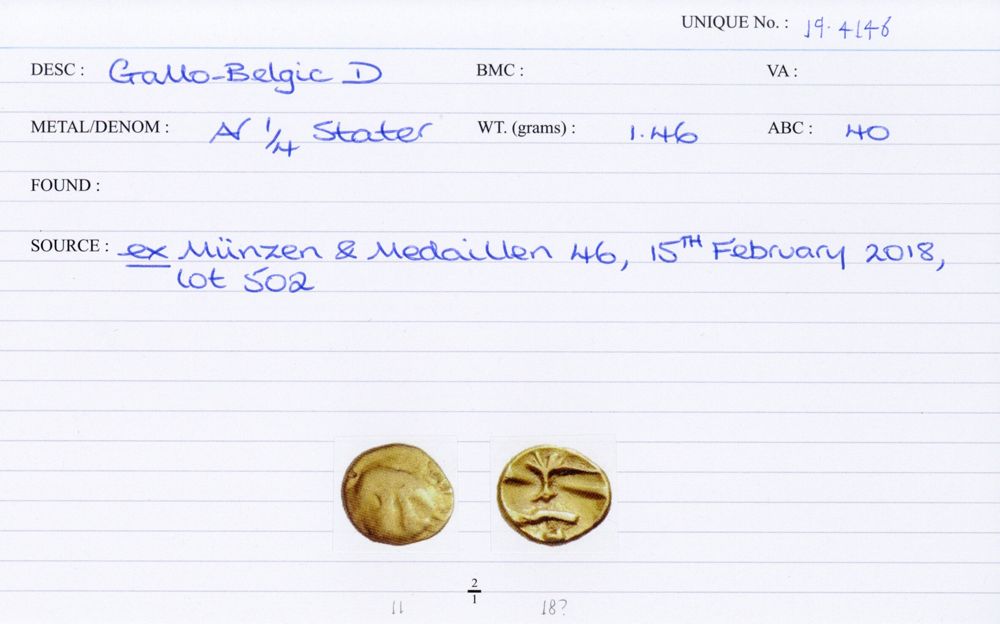 UNIQUE No. : 19.4146
DESC : Gallo-Belgic D BMC : VA :
METAL/DENOM : AV 1/4 Stater WT. (grams) : 1.46 ABC : 40
FOUND :
SOURCE : ex Münzen & Medaillen 46, 15TH February 2018,
lot 502
2
1
11 18?